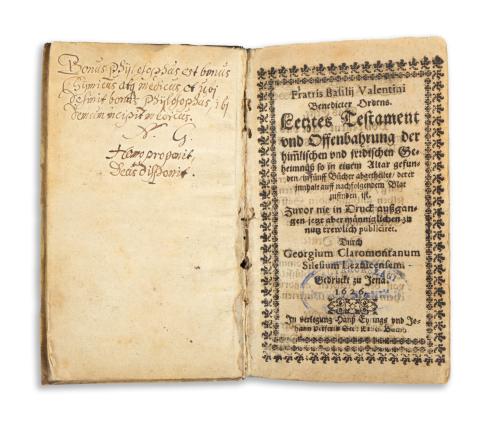 Bonus Philosophus est bonus
Chymicus atq medicus et ubi
desinit bonus philosophus, ibi
demum incipit medicus.
N. G.
Homo proponit,
Deus disponit.
Fratris Basilij Valentini
Benedicter Ordens.
Letztes Testament
vnd Offenbahrung der
himlischen vnd jrdischen Ge-
heimnuß so in einem Altar gefun-
den, in fünff Bücher abgetheilet, derer
innhalt auff nachfolgendem Blat
zufinden ist.
Zuvor nie in Druck außgan-
gen jetzt aber männiglichen zu
nutz trewlich publiciret.
Durch
Georgium Claromontanum
Silesium
Gedruckt zu Jena.
1626.
In verlegung Hanß Eyrings vnd Jo-
hann